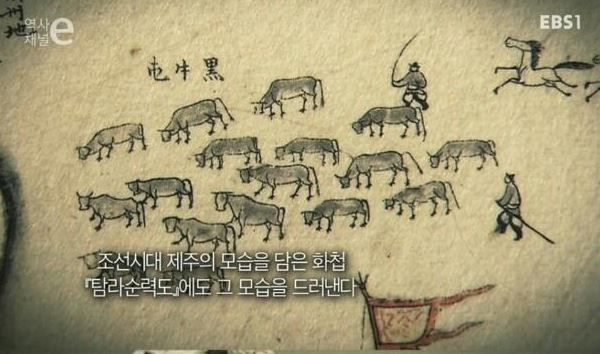 역사
채널 e
EBS1
黑牛屯
조선시대 제주의 모습을 담은 화첩
『탐라순력도』에도 그 모습을 드러낸다